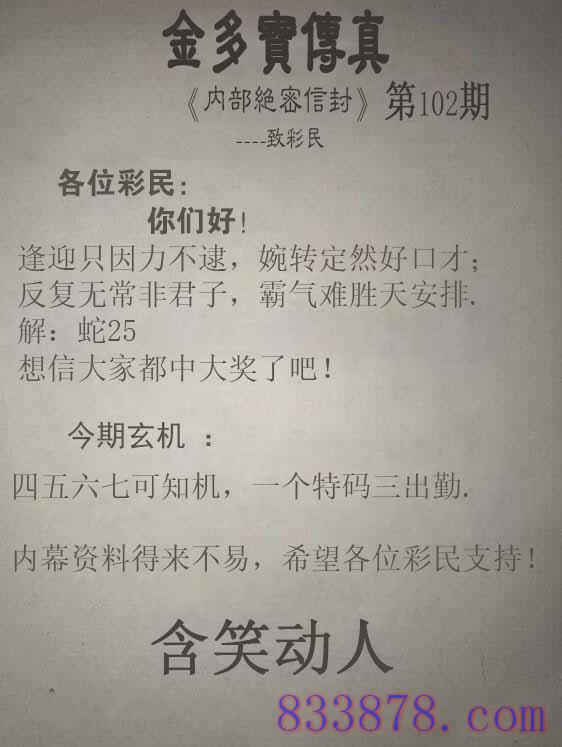 金多寶傳真
《内部絕密信封》第102期
----致彩民
各位彩民:
你们好!
逢迎只因力不逮，婉转定然好口才;
反复无常非君子，霸气难胜天安排.
解：蛇25
想信大家都中大奖了吧!
今期玄机 ：
四五六七可知机，一个特码三出勤.
内幕资料得来不易，希望各位彩民支持!
含笑动人
833878.com